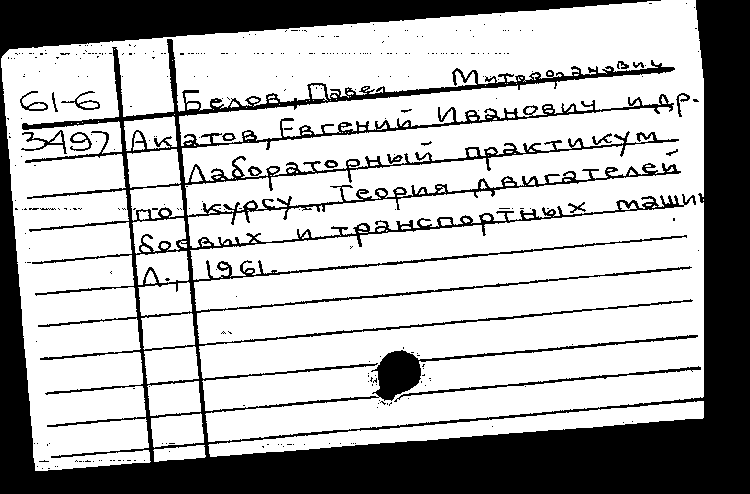 61-6 Белов, Павел Митрофанович
3497 Акатов, Евгений Иванович и др.
Лабораторный практикум
по курсу „Теория двигателей
боевых и транспортных машин
Л., 1961.